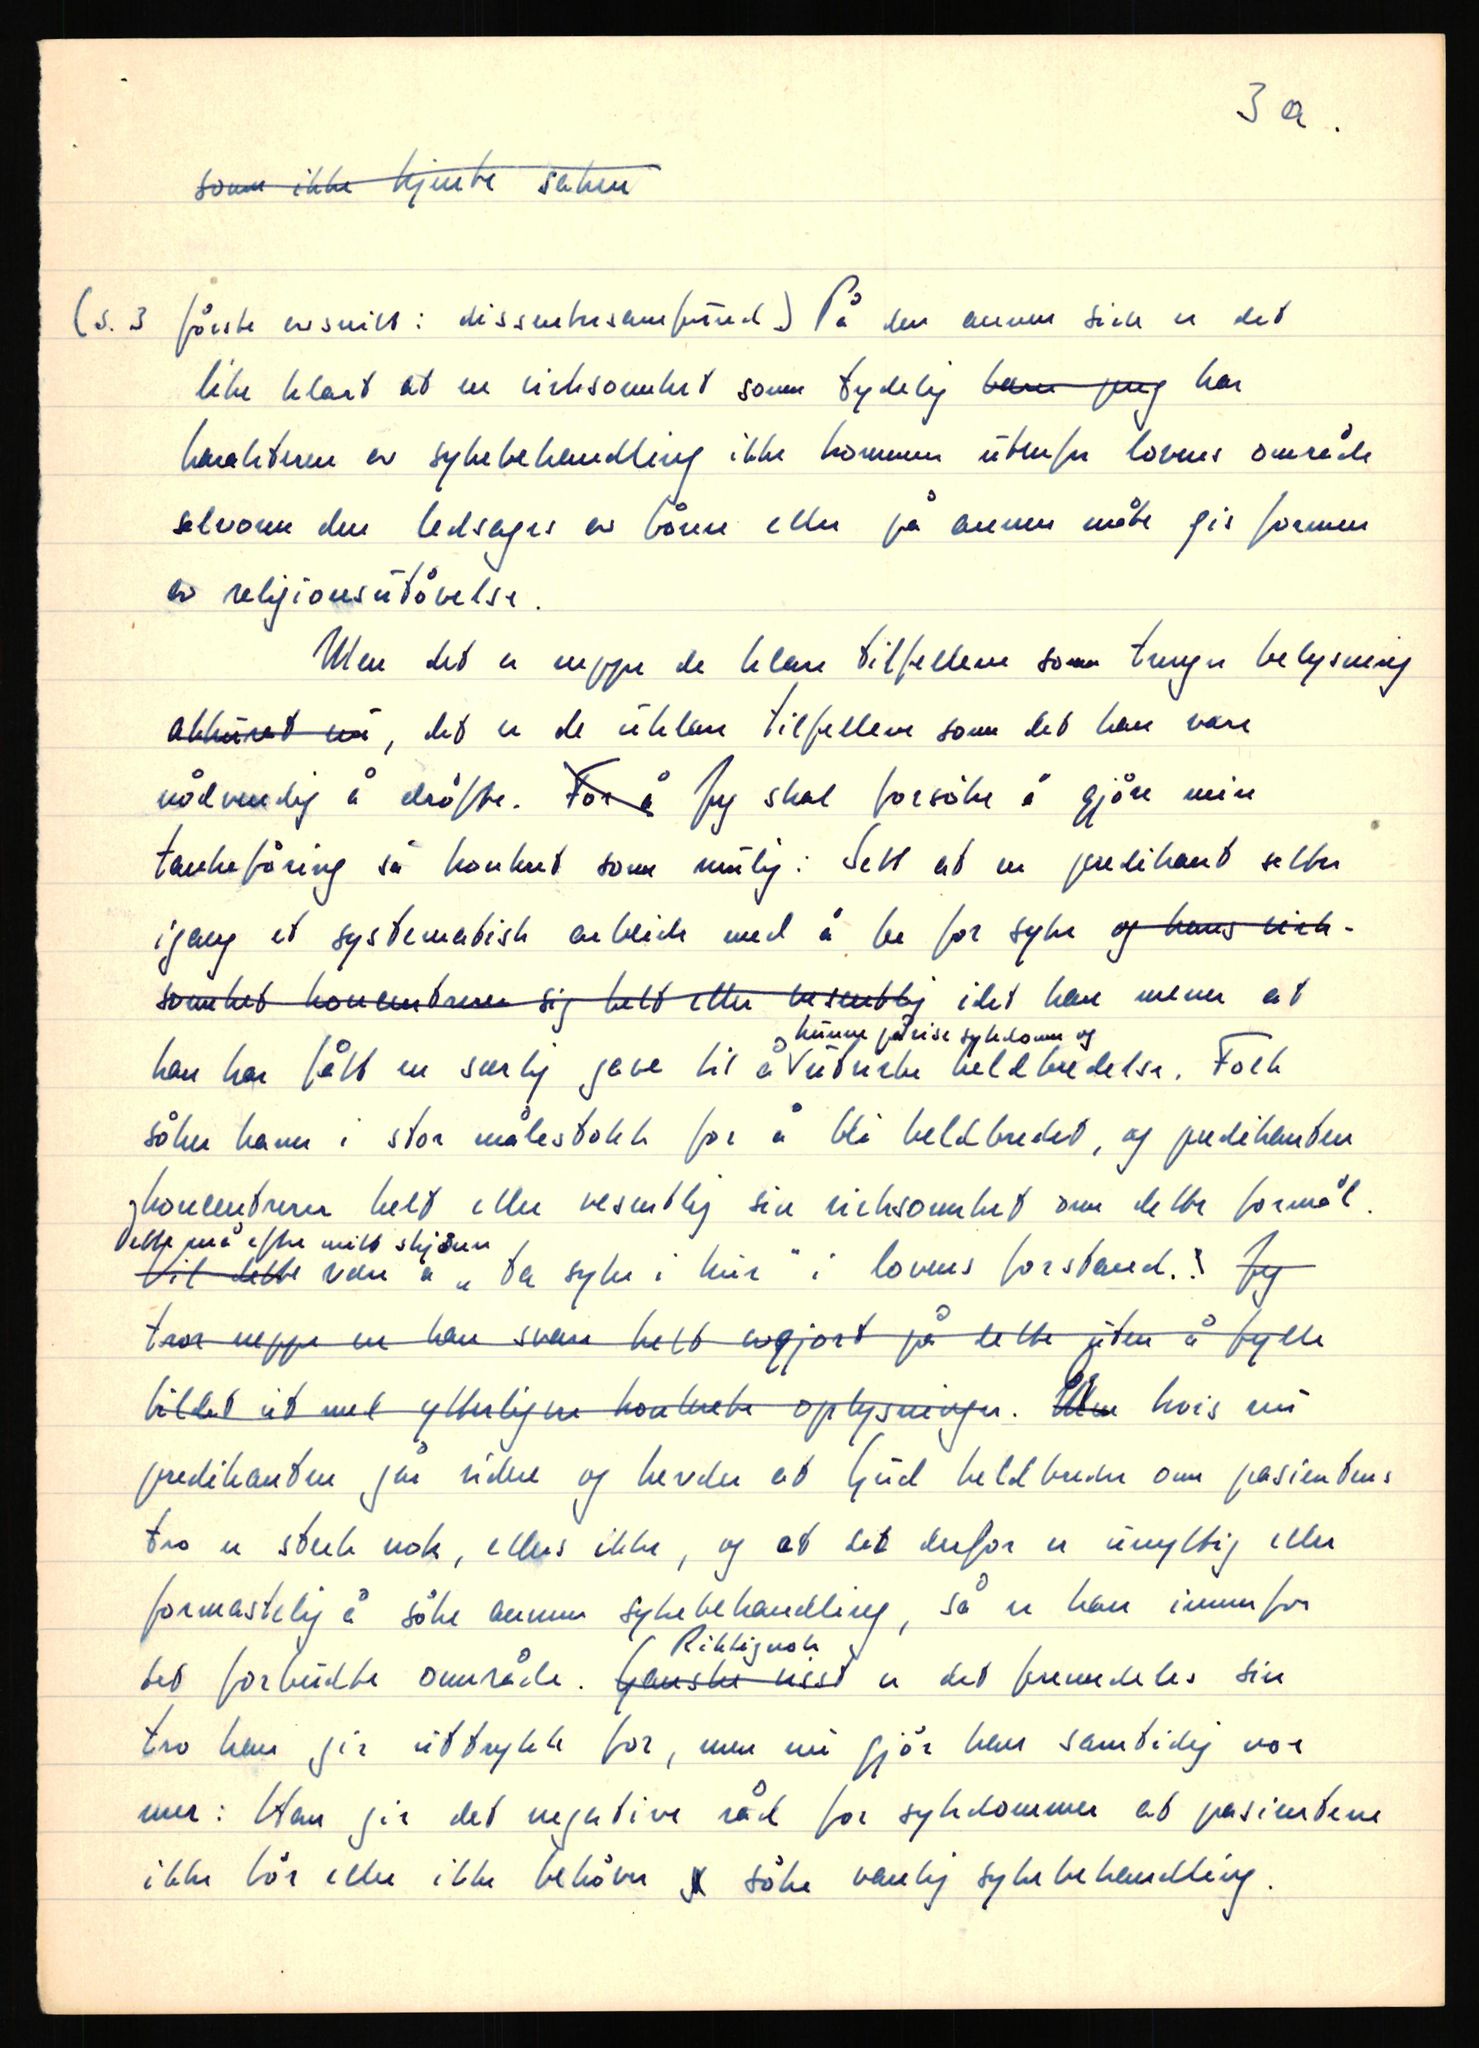 3a.
som ikke kjente saken
(s. 3 første avsnitt: dissentersamfund) På den annen side er det
like klart at en virksomhet som tydelig har
karakteren av sykebehandling ikke kommer utenfor lovens område
selvom den ledsages av bønn eller på annen måte gis formen
av religionsutøvelse.
Men det er neppe de klare tilfellene som trenger belysning
akkurat nu, det er de uklare tilfellene som det kan være
nødvendig å drøfte. For å Jeg skal forsøke å gjøre min
tankeføring så konkret som mulig: Sett at en predikant setter
igang et systematisk arbeide med å be for syke og hans virk-
somhet koncentrerer sig helt eller vesentlig idet han mener at
kunne påvise sykdom og
han har fått en særlig gave til å utvirke helbredelse. Folk
søker ham i stor målestokk for å bli helbredet, og predikanten
koncentrerer helt eller vesentlig sin virksomhet om dette formål.
Dette må efter mitt skjønn
Vil dette være å "ta syke i kur" i lovens forstand. Jeg
tror neppe en kan svare helt avgjort på dette uten å fylle
bildet ut med ytterligere konkrete oplysninger. Men hvis nu
predikanten går videre og hevder at Gud helbreder om pasientens
tro er sterk nok, ellers ikke, og at det derfor er unyttig eller
formastelig å søke annen sykebehandling, så er han innenfor
Riktignok
det forbudte område. Ganske visst er det fremdeles sin
tro han gir uttrykk for, men nu gjør han samtidig noe
mer: Han gir det negative råd for sykdommen at pasientene
ikke bør eller ikke behøver søke vanlig sykebehandling.